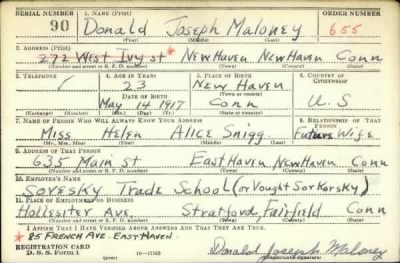 SERIAL NUMBER 1. NAME (Print) ORDER NUMBER
90 Donald Joseph Maloney 655
(First) (Middle) (Last)
2. ADDRESS (Print)
272 West Ivy st * New Haven New Haven Conn
(Number and street or R. F. D. number) (Town) (County) (State)
3. TELEPHONE 4. AGE IN YEARS 5. PLACE OF BIRTH 6. COUNTRY OF CITIZENSHIP
23 New Haven
DATE OF BIRTH (Town or county)
May 14 1917 Conn U.S
(Exchange) (Number) (Mo.) (Day) (Yr.) (State or country)
7. NAME OF PERSON WHO WILL ALWAYS KNOW YOUR ADDRESS 8. RELATIONSHIP OF THAT PERSON
Miss Helen Alice Snigg Future Wife
(Mr., Mrs., Miss) (First) (Middle) (Last)
9. ADDRESS OF THAT PERSON
635 Main st East Haven New Haven Conn
(Number and street or R. F. D. number) (Town) (County) (State)
10. EMPLOYER'S NAME
Soresky Trade School (or Vought Sorkorsky)
11. PLACE OF EMPLOYMENT OR BUSINESS
Hollesiter Ave. Stratford, Fairfield Conn
(Number and street or R. F. D. number) (Town) (County) (State)
I AFFIRM THAT I HAVE VERIFIED ABOVE ANSWERS AND THAT THEY ARE TRUE.
* 85 FRENCH AVE. EAST HAVEN.
REGISTRATION CARD
D. S. S. Form 1 (over) 16-17105 Donald Joseph Maloney